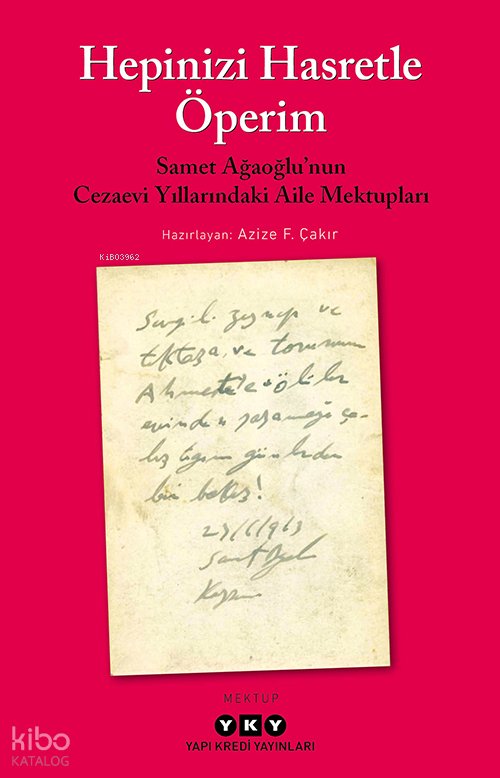 Hepinizi Hasretle
Öperim
Samet Ağaoğlu'nun
Cezaevi Yıllarındaki Aile Mektupları
Hazırlayan: Azize F. Çakır
KİB03962
Sevgili Zeynep ve
ve torunum
Ahmet'e "Ölüler
evinden" yaşamağa ça-
lıştığım günlerden
bir bakış!
23/6/963
MEKTUP
YKY
YAPI KREDİ YAYINLARI
kibo
KATALOG